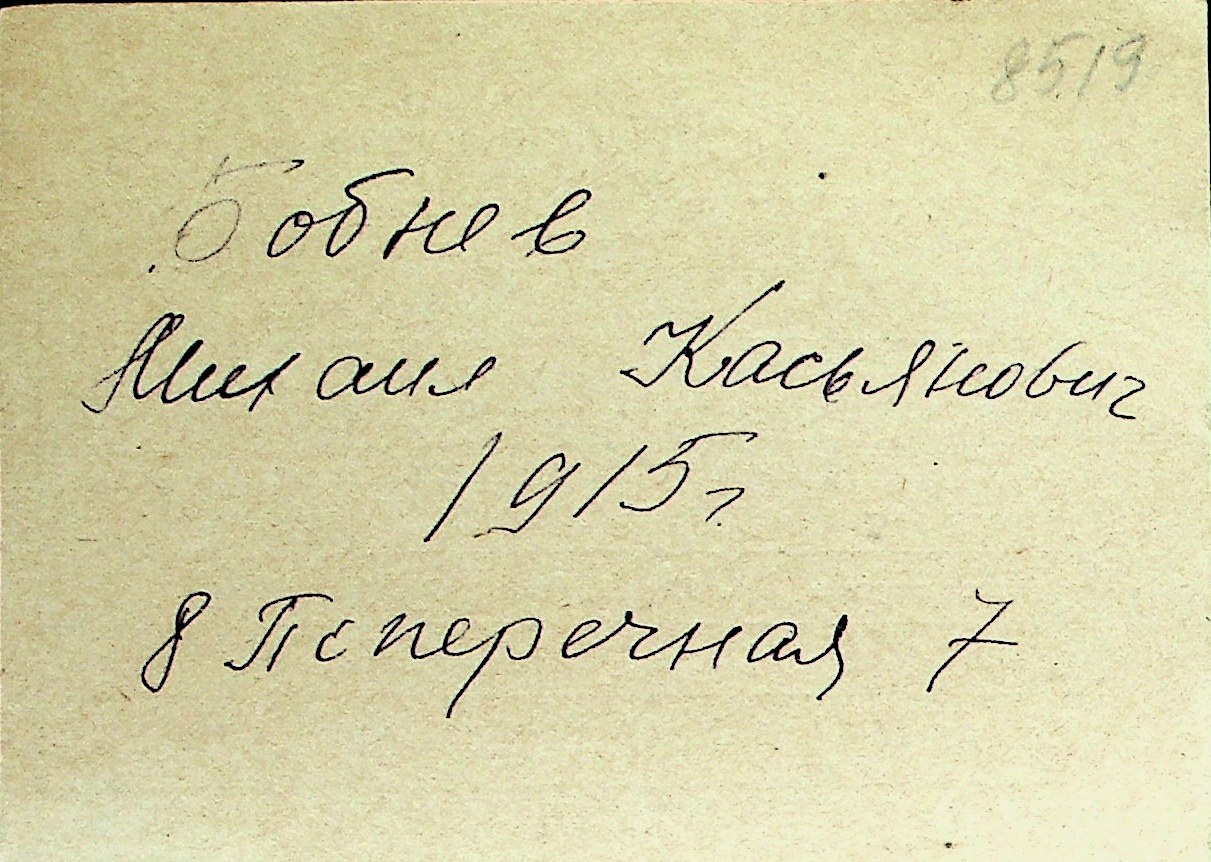 8519
Бобнев
Михаил Касьянович
1915г
8 Поперечная 7